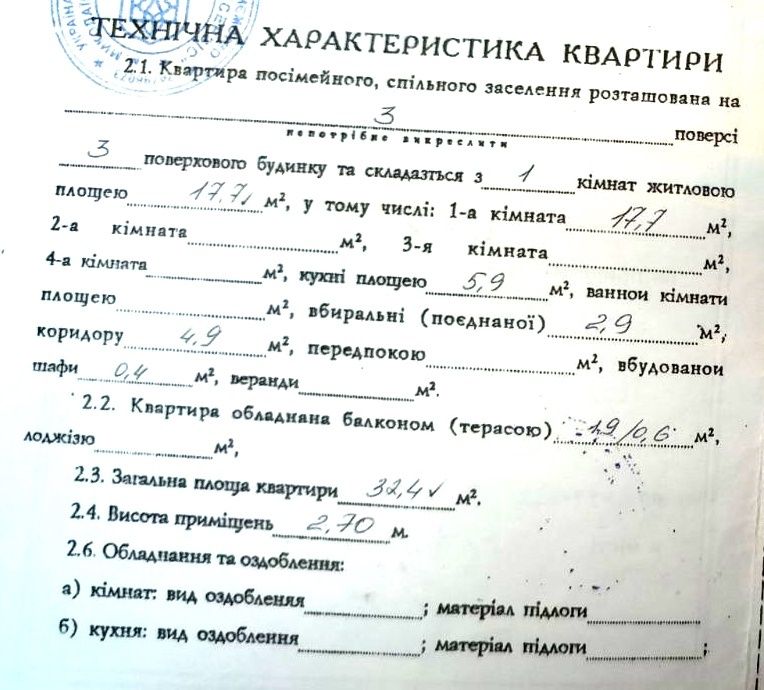 УКРАЇНА
ТЕХНІЧНА ХАРАКТЕРИСТИКА КВАРТИРИ
2.1. Квартира посімейного, спільного заселення розташована на
3 поверсі
непотрібне викреслити
3 поверхового будинку та складазться з 1 кімнат житловою
площею 17,7 м², у тому числі: 1-а кімната 17,7 м²,
2-а кімната м², 3-я кімната м²,
4-а кімната м², кухні площею 5,9 м², ванної кімнати
площею м², вбиральні (поєднаної) 2,9 м²,
коридору 4,9 м², передпокою м², вбудованої
шафи 0,4 м², веранди м².
2.2. Квартира обладнана балконом (терасою) 1,9/0,6 м²,
лоджізю м²,
2.3. Загальна площа квартири 32,4 м².
2.4. Висота приміщень 2,70 м.
2.6. Обладнання та оздоблення:
а) кімнат: вид оздобленяя ; матеріал підлоги
б) кухня: вид оздоблення ; матеріал підлоги ;